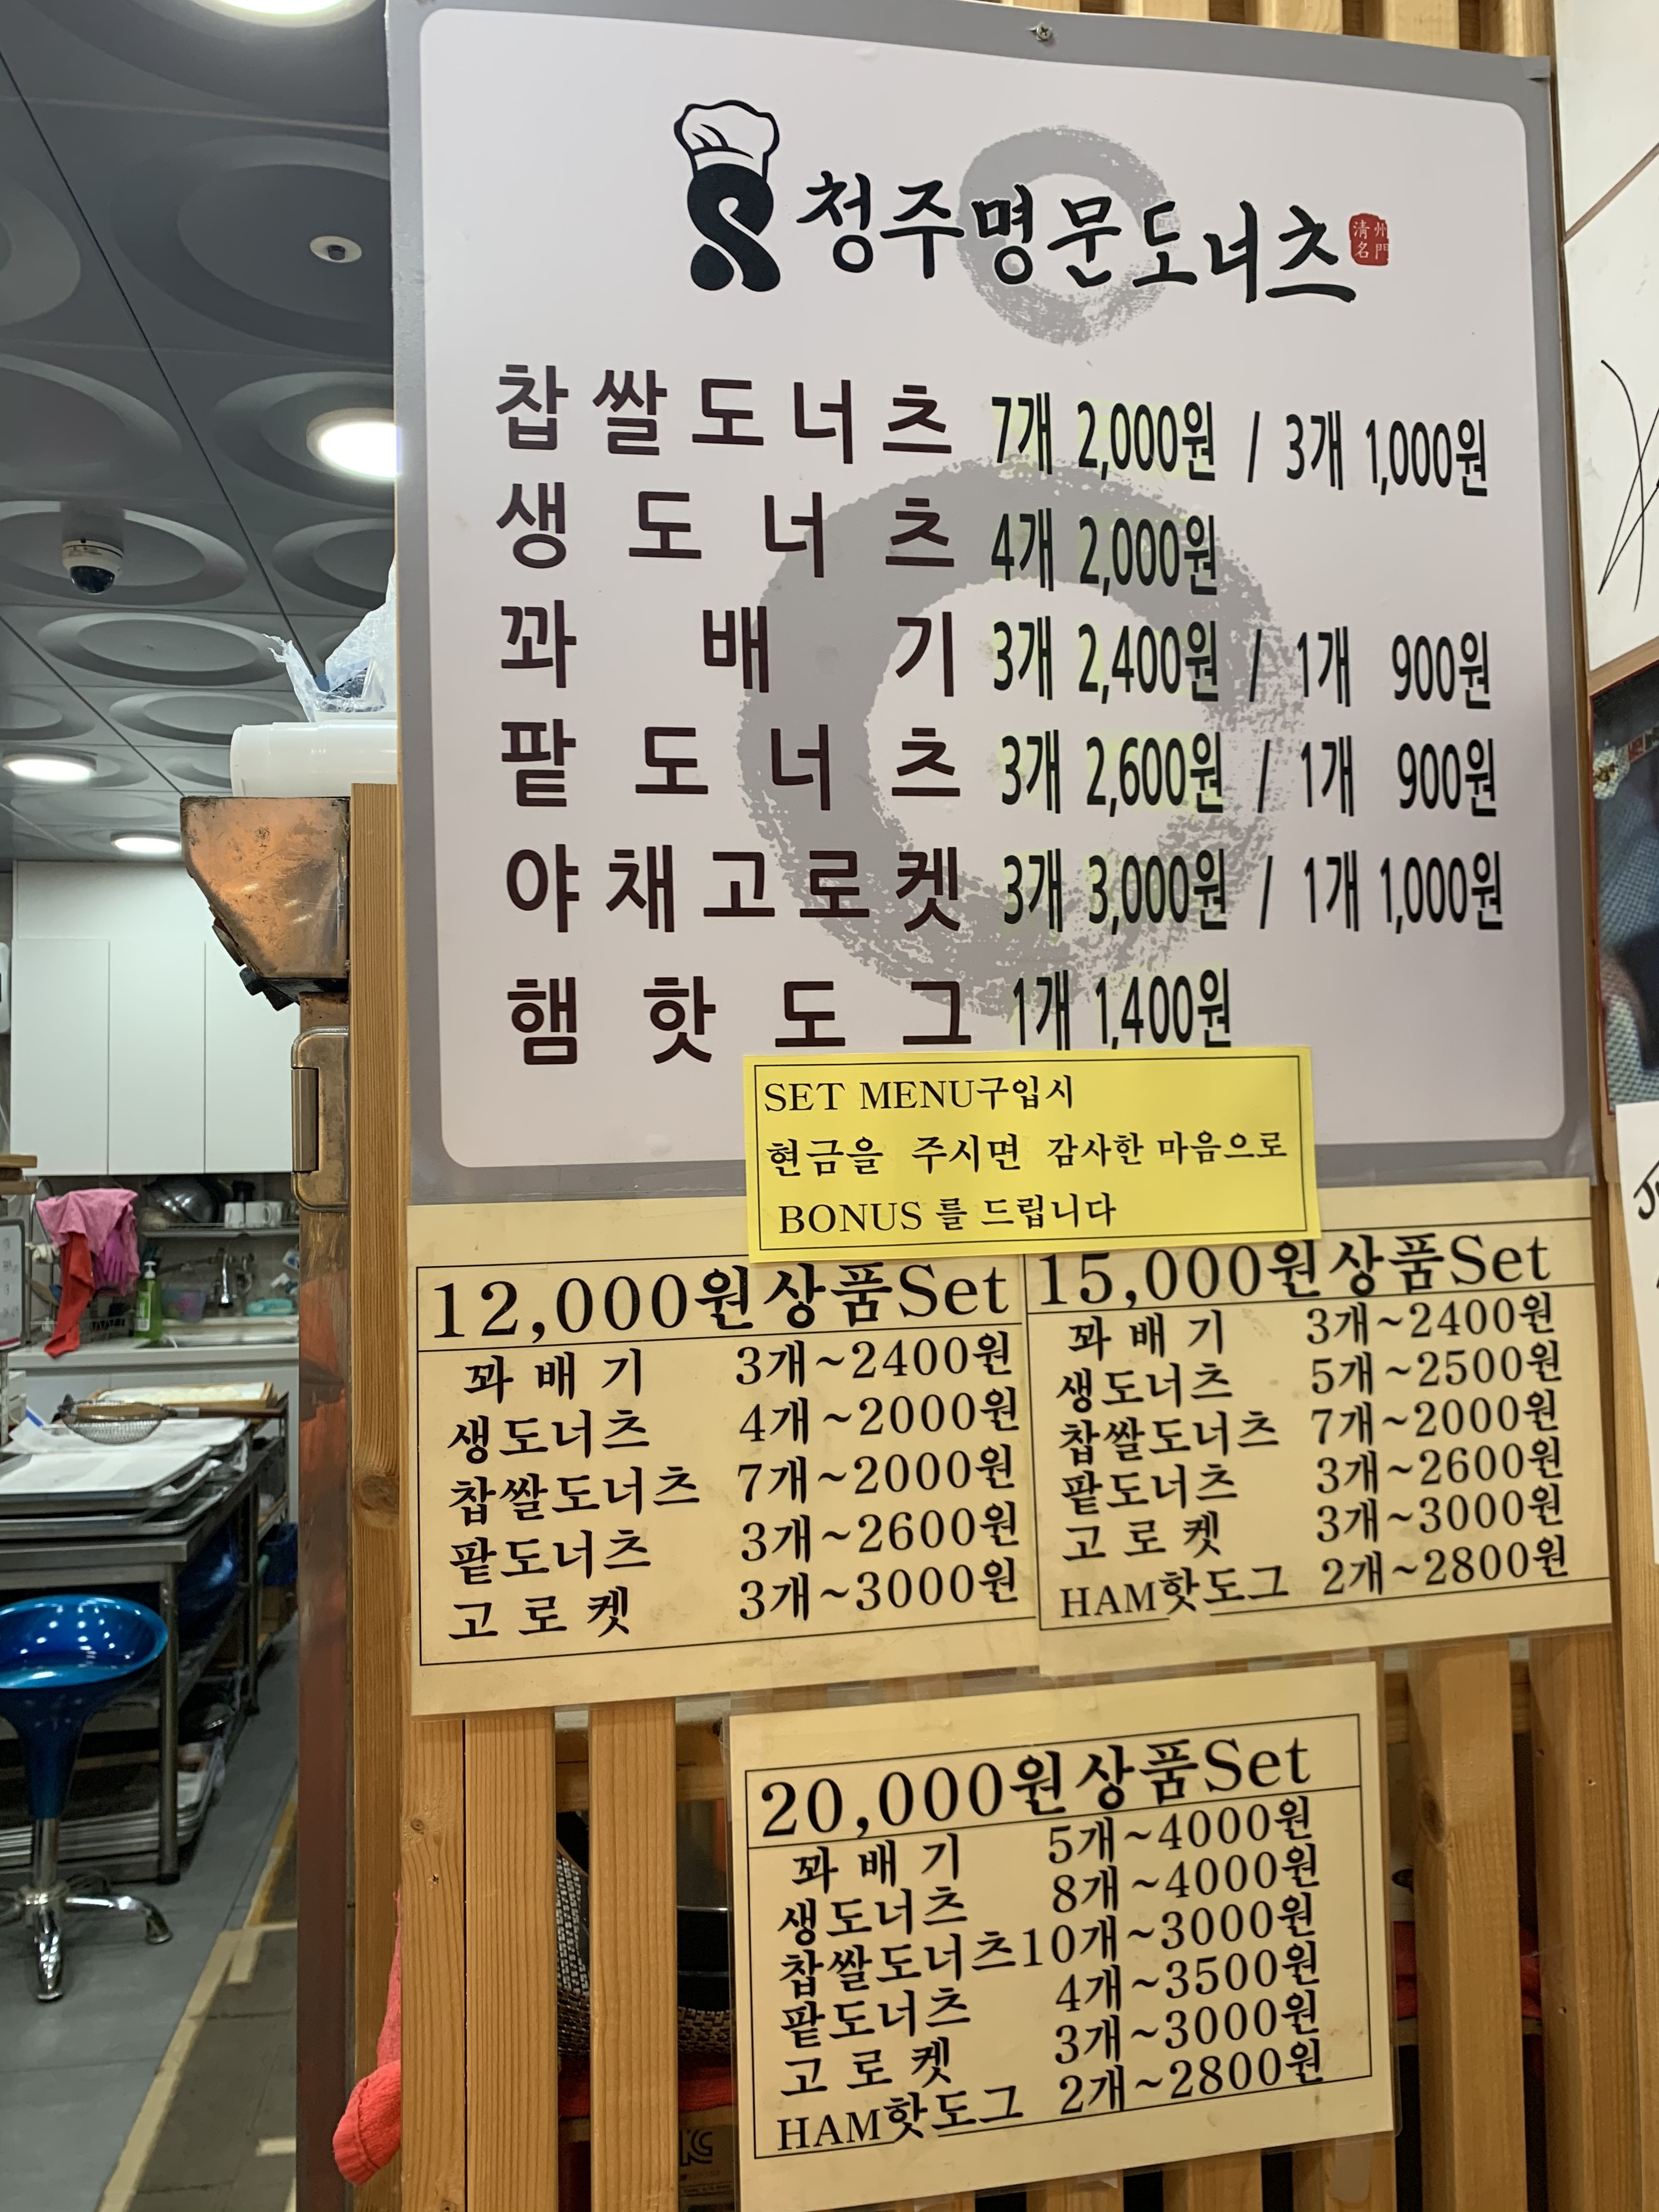 청주명문도너츠
清州
名門
찹쌀도너츠 7개 2,000원 / 3개 1,000원
생도너츠 4개 2,000원
꽈배기 3개 2,400원 / 1개 900원
팥도너츠 3개 2,600원 / 1개 900원
야채고로켓 3개 3,000원 / 1개 1,000원
햄핫도그 1개 1,400원
SET MENU구입시
현금을 주시면 감사한 마음으로
BONUS 를 드립니다
12,000원상품Set
꽈배기 3개~2400원
생도너츠 4개~2000원
찹쌀도너츠 7개~2000원
팥도너츠 3개~2600원
고로켓 3개~3000원
15,000원상품Set
꽈배기 3개~2400원
생도너츠 5개~2500원
찹쌀도너츠 7개~2000원
팥도너츠 3개~2600원
고로켓 3개~3000원
HAM핫도그 2개~2800원
20,000원상품Set
꽈배기 5개~4000원
생도너츠 8개~4000원
찹쌀도너츠10개~3000원
팥도너츠 4개~3500원
고로켓 3개~3000원
HAM핫도그 2개~2800원